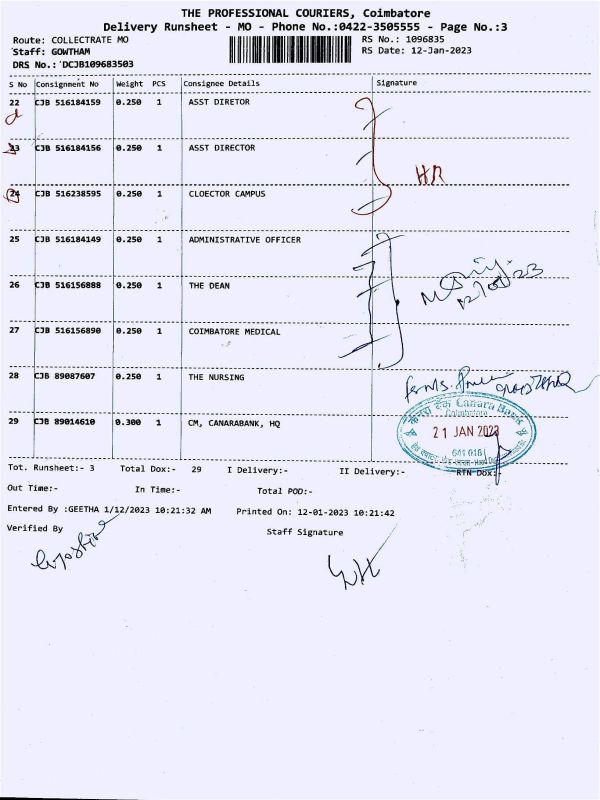 THE PROFESSIONAL COURIERS, Coimbatore
Delivery Runsheet - MO - Phone No.:0422-3505555 - Page No.:3
Route: COLLECTRATE MO RS No.: 1096835
Staff: GOWTHAM RS Date: 12-Jan-2023
DRS No.: DCJB109683503
S No Consignment No Weight PCS Consignee Details Signature
22 CJB 516184159 0.250 1 ASST DIRETOR
23 CJB 516184156 0.250 1 ASST DIRECTOR
HR
24 CJB 516238595 0.250 1 CLOECTOR CAMPUS
25 CJB 516184149 0.250 1 ADMINISTRATIVE OFFICER
26 CJB 516156888 0.250 1 THE DEAN
27 CJB 516156890 0.250 1 COIMBATORE MEDICAL
28 CJB 89087607 0.250 1 THE NURSING
29 CJB 89014610 0.300 1 CM, CANARABANK, HQ
Canara Bank
Coimbatore
21 JAN 2023
641 018
Tot. Runsheet:- 3 Total Dox:- 29 I Delivery:- II Delivery:- RTN Dox:-
Out Time:- In Time:- Total POD:-
Entered By :GEETHA 1/12/2023 10:21:32 AM Printed On: 12-01-2023 10:21:42
Verified By Staff Signature